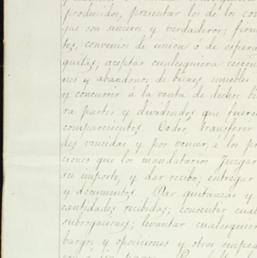 producidos, presentar los de los con
que son sincero y verdaderos; firma
tos, convenios de union o de espera
quitas; aceptar cualesquiera cesion
nes y abandonos de bienes, mueble
y concurrir á la venta de dichos bi
ra partes y dividendos que fuere
comparecientes. Ceder, transferir
das vencidas y por vencer, a los pr
ciones que los mandatarios juzgar
su importe, y dar recibo; entregar
y documentos. Dar quitanzas y
cantidades recibidas; consentir cual
subrogaciones; levantar cualesquier
bargos y oposiciones y otros impe